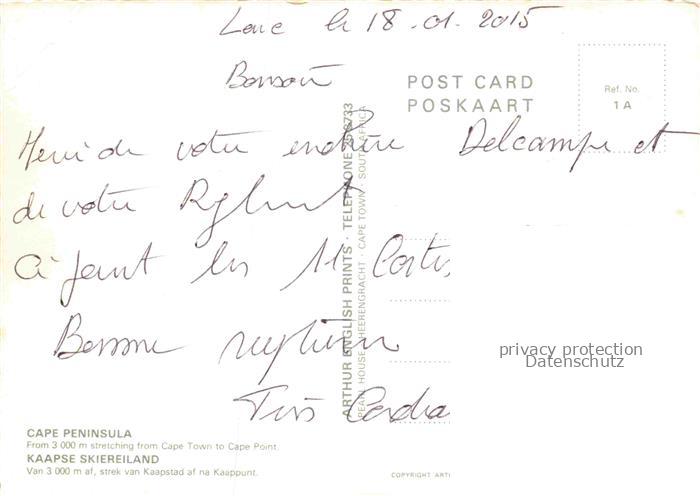 le 18.01.2015
Bonsoir
POST CARD
POSKAART
Ref. No.
1 A
Merci de votre enchère Delcampe et
de votre Rglmt
Ci-joint les 11 Cartes
Bonne réception
Très Cordia
ARTHUR ENGLISH PRINTS · TELEPHONE
PEARL HOUSE HEERENGRACHT · CAPE TOWN · SOUTH AFRICA
privacy protection
Datenschutz
CAPE PENINSULA
From 3 000 m stretching from Cape Town to Cape Point.
KAAPSE SKIEREILAND
Van 3 000 m af, strek van Kaapstad af na Kaappunt.
COPYRIGHT ART